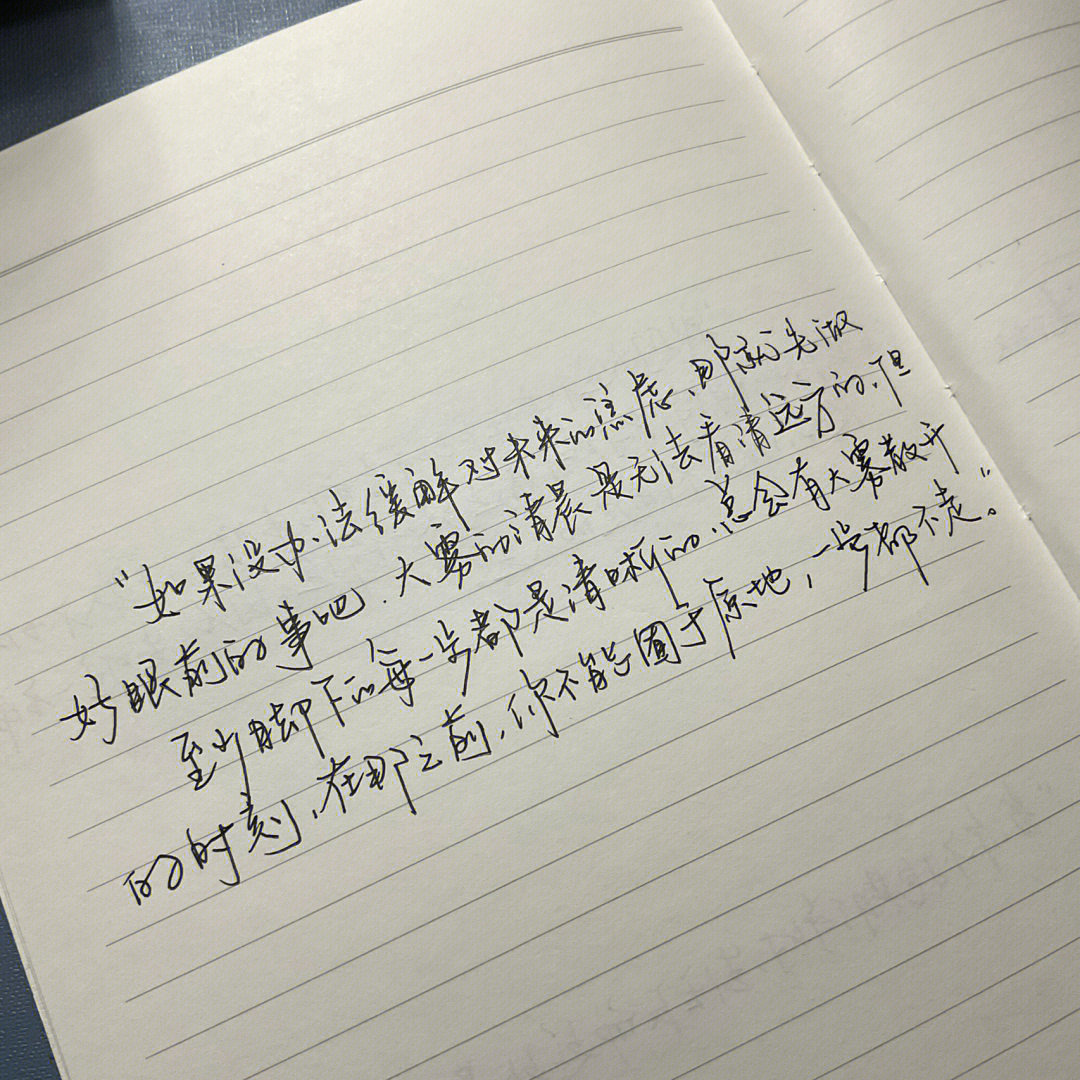 “如果没办法缓解对未来的焦虑、那就先做
好眼前的事吧.大雾的清晨是无法看清远方的,但
至少脚下的每一步都是清晰的.总会有大雾散开
的时刻,在那之前,你不能囿于原地,一步都不走。”